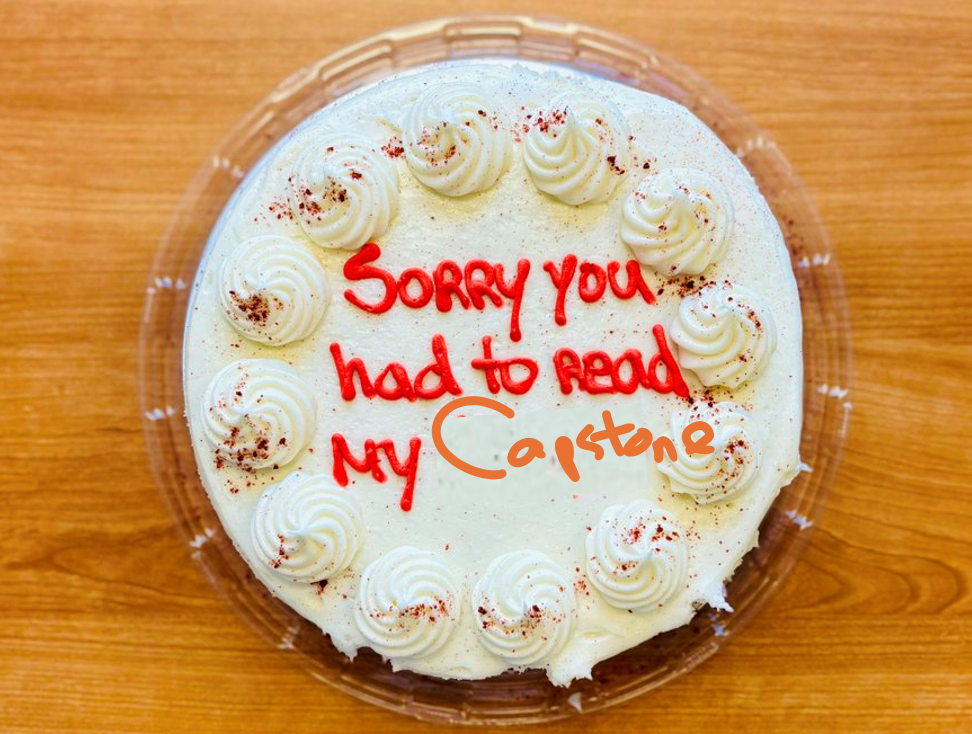 Sorry you
had to Read
My Capstone